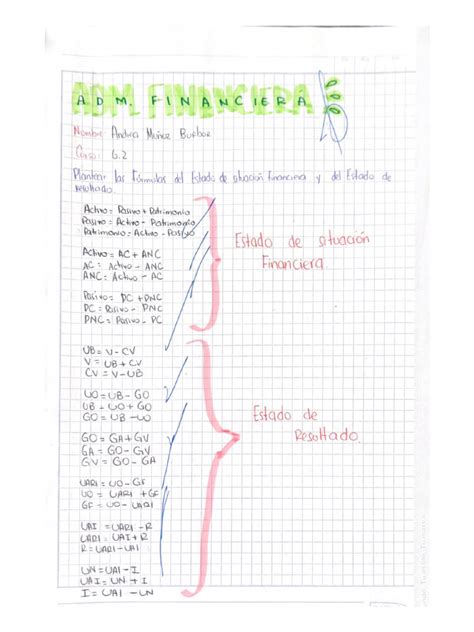 ADM. FINANCIERA
Nombre: Andrea Muñoz Burbor
Curso: 6.2
Plantear las fórmulas del Estado de situación financiera y del Estado de
resultado.
Activo = Pasivo + Patrimonio
Pasivo = Activo - Patrimonio
Patrimonio = Activo - Pasivo
Activo = AC + ANC
AC = Activo - ANC
ANC = Activo - AC
Pasivo = PC + PNC
PC = Pasivo - PNC
PNC = Pasivo - PC
Estado de situación
Financiera.
UB = V - CV
V = UB + CV
CV = V - UB
UO = UB - GO
UB = UO + GO
GO = UB - UO
GO = GA + GV
GA = GO - GV
GV = GO - GA
UARI = UO - GF
UO = UARI + GF
GF = UO - UARI
UAI = UARI - R
UARI = UAI + R
R = UARI - UAI
UN = UAI - I
UAI = UN + I
I = UAI - UN
Estado de
Resultado.